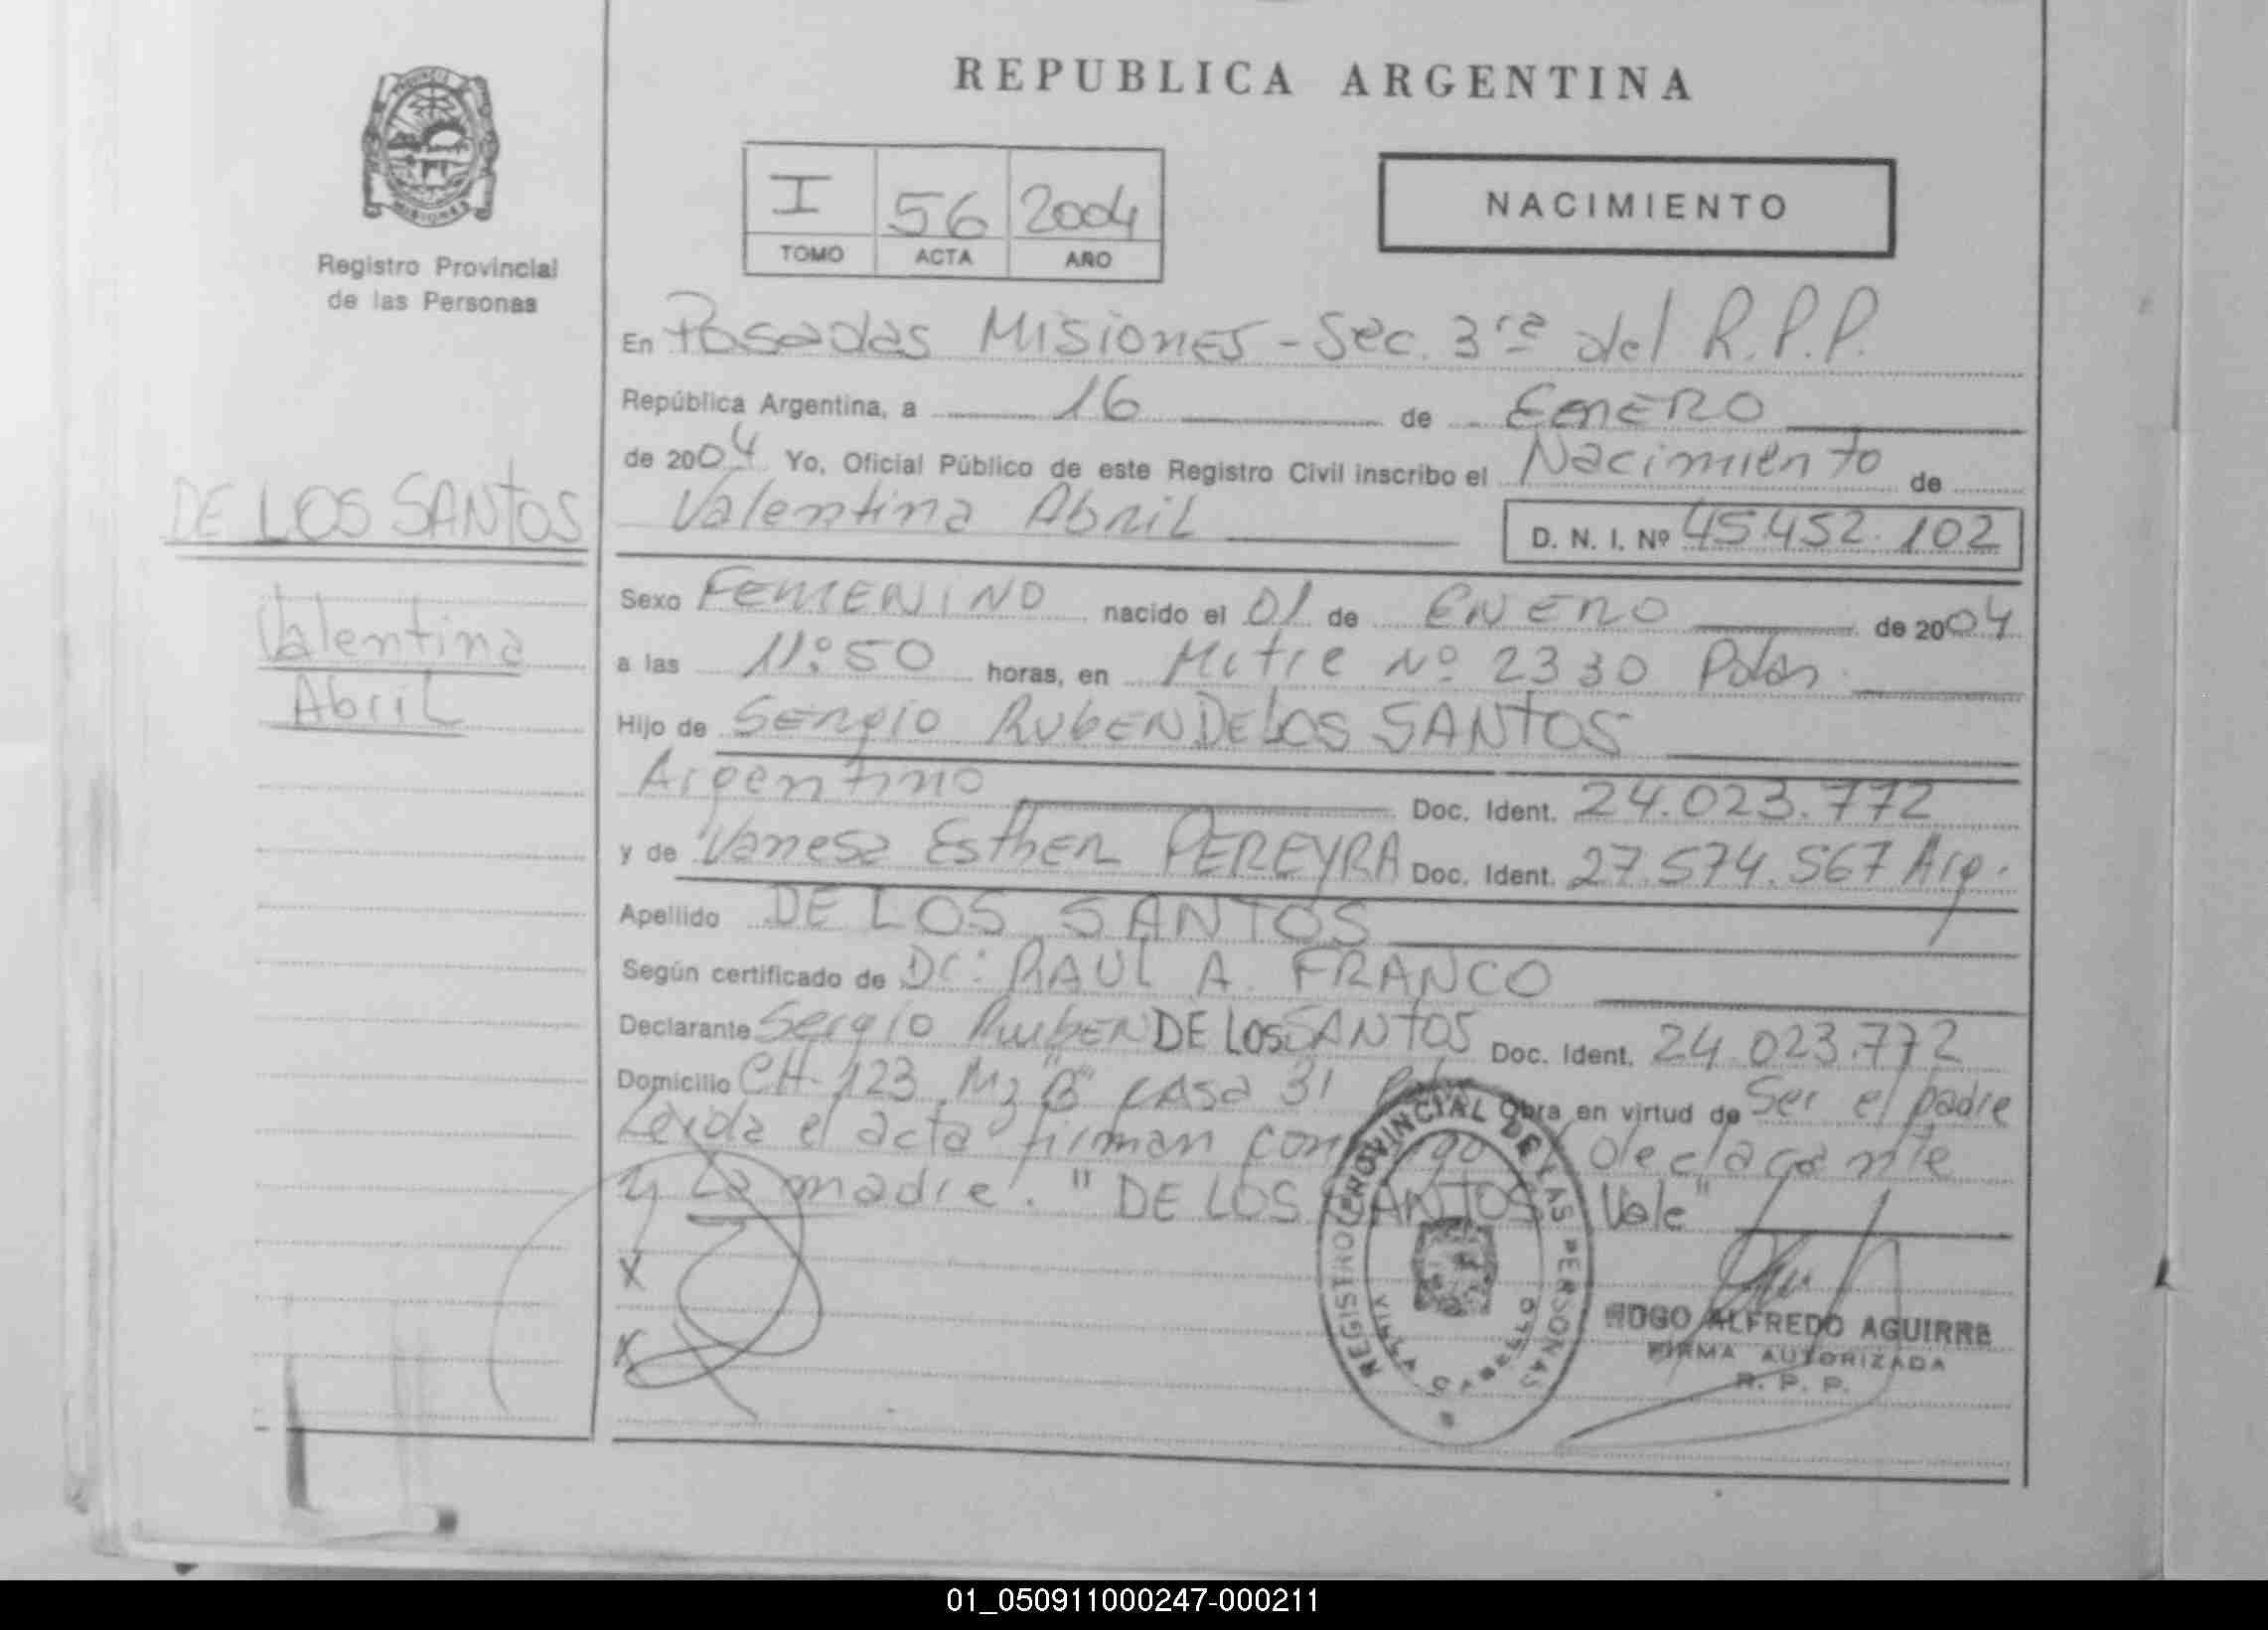 REPUBLICA ARGENTINA
PROVINCIA
MISIONES
Registro Provincial
de las Personas
I 56 2004
TOMO ACTA AÑO
NACIMIENTO
En Posadas Misiones - Sec. 3ra del R.P.P.
República Argentina, a 16 de ENERO
de 2004 Yo, Oficial Público de este Registro Civil inscribo el Nacimiento de
Valentina Abril D. N. I. Nº 45.452.102
DE LOS SANTOS
Valentina
Abril
Sexo FEMENINO nacido el 01 de ENERO de 2004
a las 11:50 horas, en Mitre Nº 2330 Pdas
Hijo de Sergio RUBEN DE LOS SANTOS
Argentino Doc. Ident. 24.023.772
y de Vanesa EsthER PEREYRA Doc. Ident. 27.574.567 Arg.
Apellido DE LOS SANTOS
Según certificado de Dr: RAUL A. FRANCO
Declarante Sergio RubEN DE LOS SANTOS Doc. Ident. 24.023.772
Domicilio CH. 123 Mz "B" CASA 31 Obra en virtud de Ser el padre
Leida el acta firman declarante
y La madre. "DE LOS SANTOS Vale"
X
X
REGISTRO PROVINCIAL DE LAS PERSONAS
VILLA CABELLO
HUGO ALFREDO AGUIRRE
FIRMA AUTORIZADA
R. P. P.
01_050911000247-000211